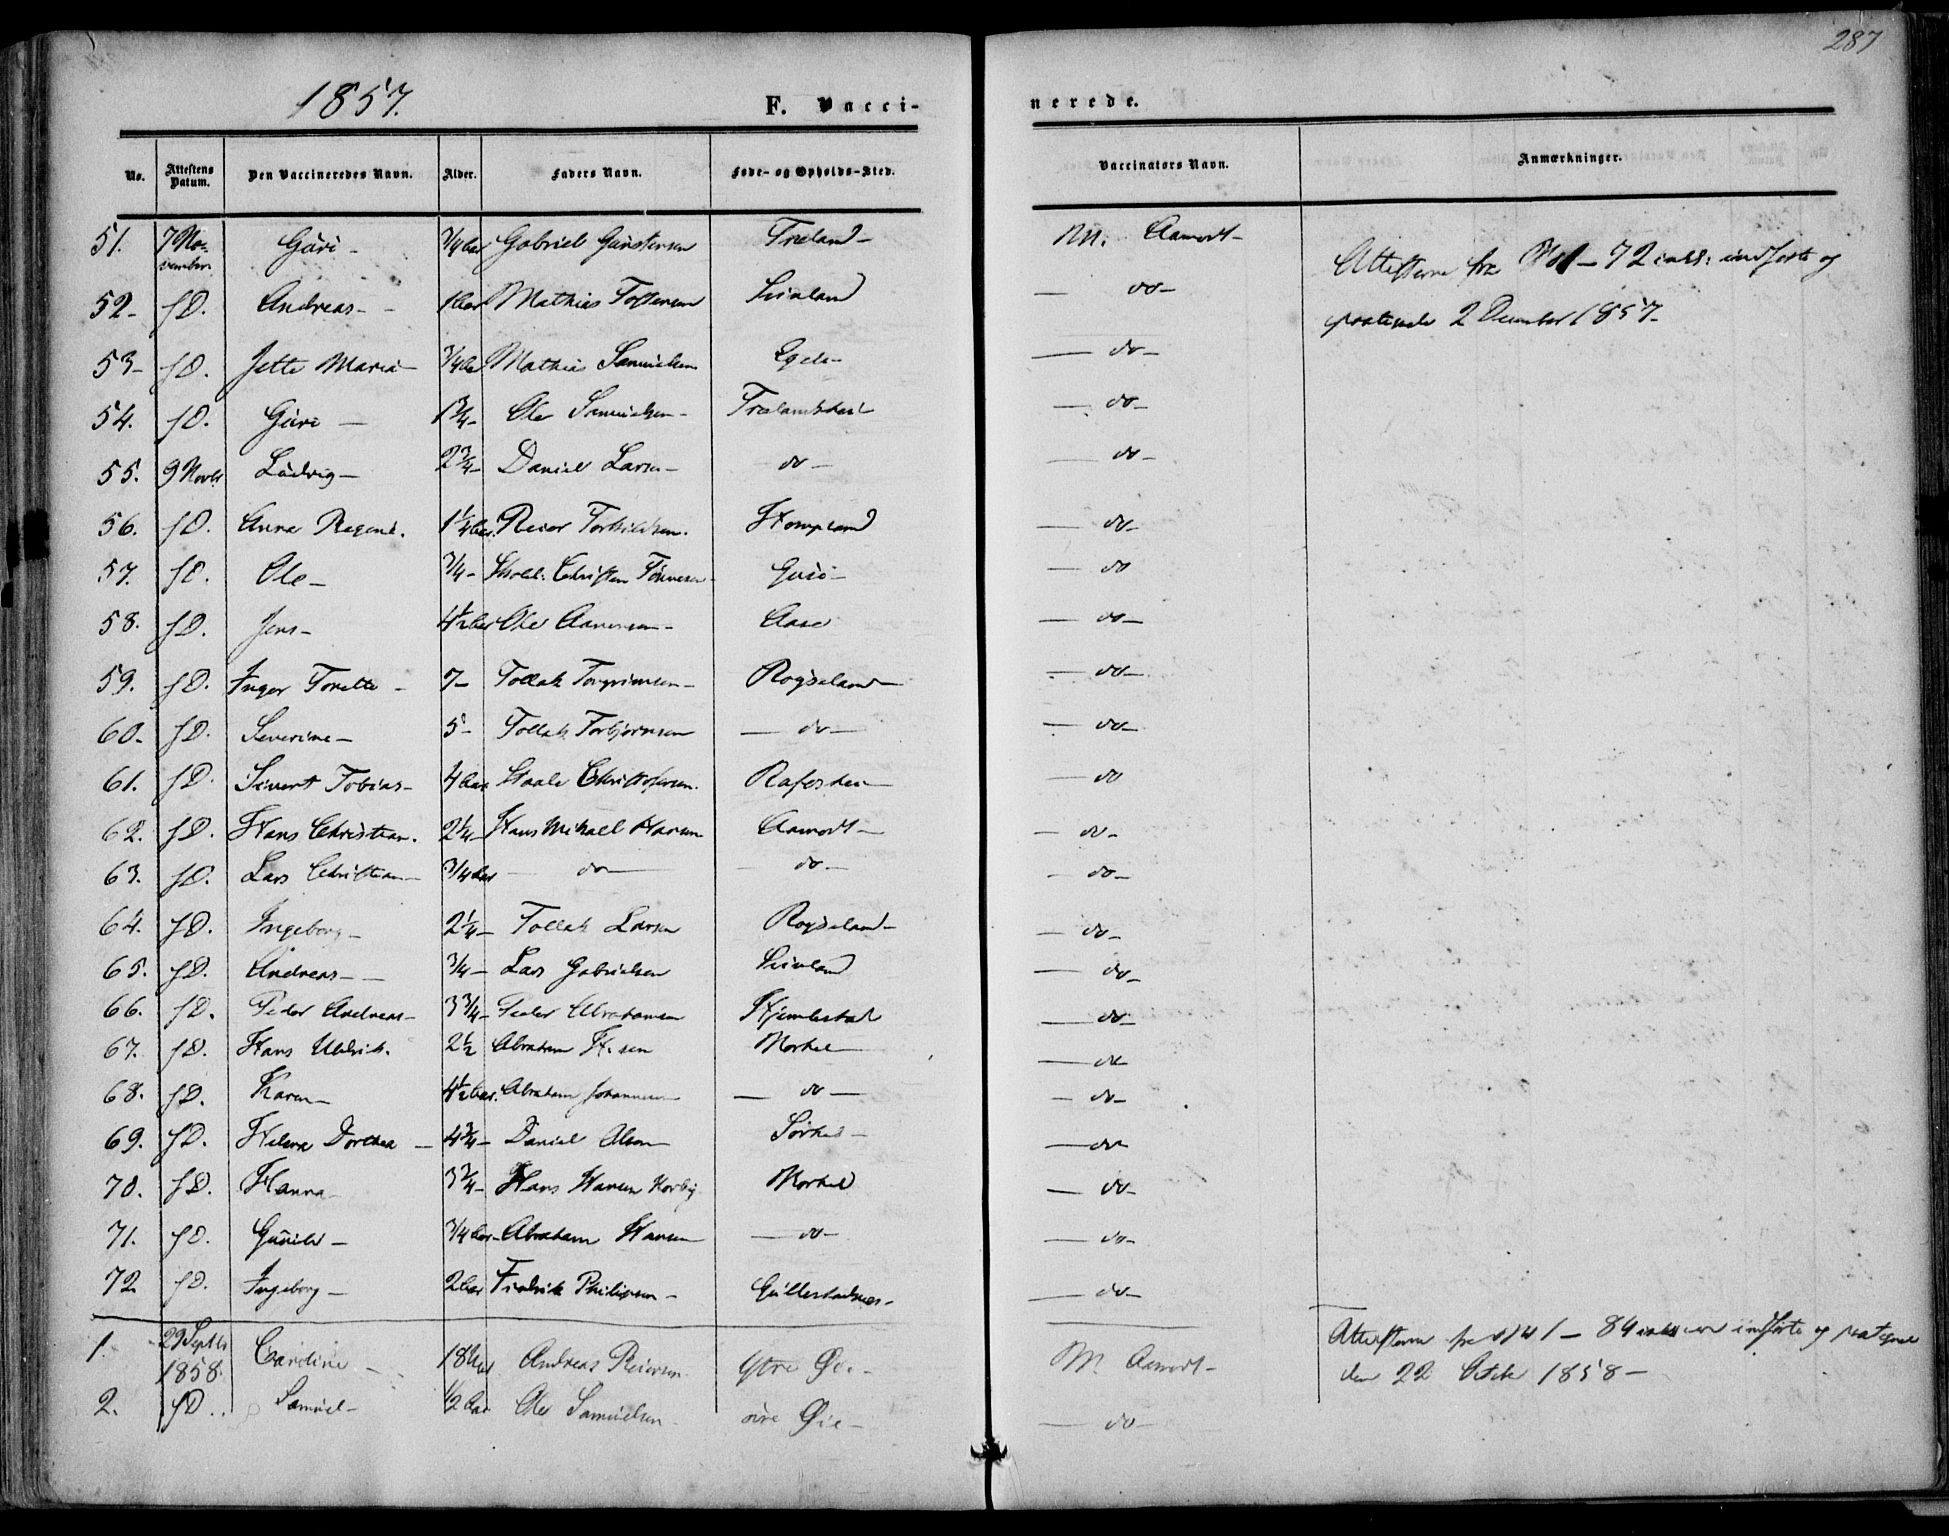 287
1857.
F. Vaccinerede.
No. Attestens Datum. Den Vaccineredes Navn. Alder. Faders Navn. Føde- og Opholds-Sted. Vaccinators Navn. Anmærkninger.
51. 7 November Guri - 3/4 Aar Gabriel Gunstensen Træland - M. Aamodt -
Attesterne fra No 1 - 72 inkl: indførte og
52 - sD. Andreas - 1 Aar Mathias - do -
paategnede 2 December 1857 -
53 - sD. Jette Maria - 3/4 Aar Mathias Samuelsen Egeli - - do -
54. sD. Guri - 1 3/4 - Ole Samuelsen - - do -
55. 9 Novbr Ludvig - 2 3/4 - Daniel Larsen - do - - do -
56. sD. Anna Regine. 1 1/4 Aar. Reier Torkildsen. - do -
57. sD. Ole - 3/4 - Christen Tønnesen - - do
58. sD. Jens - 4 1/2 Aar Ole Aanensen - Aase - do -
59. sD. Inger Tonette - 7 - Tollak Torgrimsen - Røyseland - - do -
60 - sD. Severine - 5 - Tollak Torbjørnsen - do - - do -
61. sD. Sivert Tobias - 4 Aar Staale Christophersen. Rafoshei - - do
62. sD. Hans Christian. 2 1/4 - Hans Mikall Hansen Aamodt - - do -
63. sD. Lars Christian - 3/4 Aar - do - - do - - do -
64. sD. Ingeborg - 2 1/4 - Tollak Larsen Røyseland - - do -
65. sD. Andreas - 3/4 - Lars Gabrielsen - do -
66. sD. Peder Andreas - 3 3/4 - Peder Abrahamsen - do -
67. sD. Hans Uldrik. 2 1/2 Abraham Hansen - do -
68. sD. Karen - 4 1/2 Aar. Abraham Johannesen - do - - do -
69. sD. Helene Dorthea - 4 3/4 - Daniel Olsen - do -
70. sD. Hanna - 3 3/4 - Hans Hansen - do -
71. sD. Gunild - 3/4 Aar - Abraham Hansen - do - - do -
72 sD. Ingeborg - 2 Aar Fredrik Philipsen - Gullestadnes - - do -
1. 29 Septbr 1858. Caroline - Andreas Reiersen Ytre Øie - M. Aamodt -
Attesterne fra No 1 - 84 inkl ere indførte og paategnede
den 22 Octbr 1858 -
2. sD. Samuel - 1/2 Aar Ole Samuelsen Øie - - do -